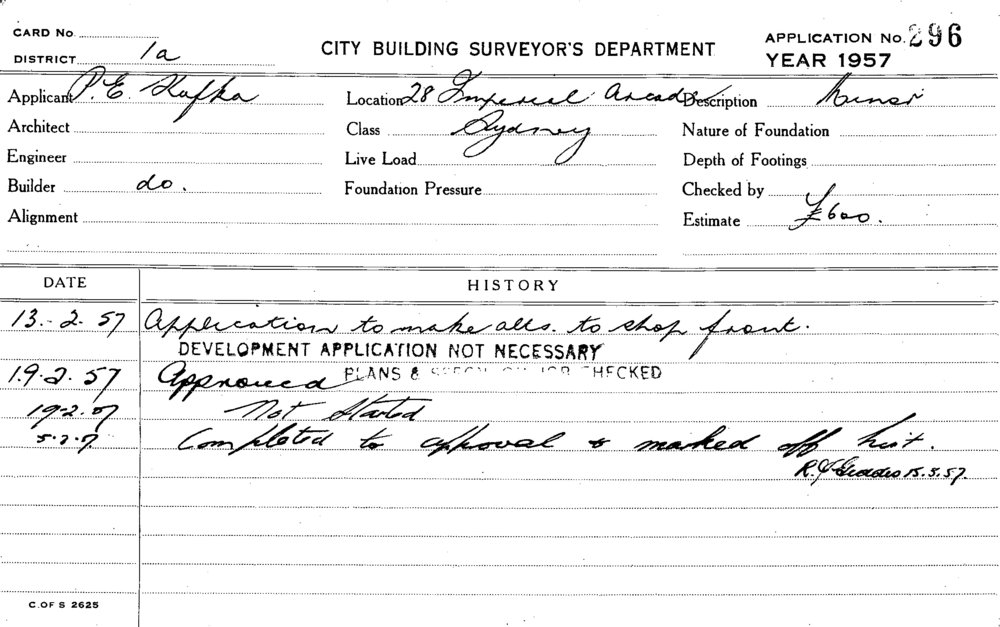 CARD No.
DISTRICT 1a
CITY BUILDING SURVEYOR'S DEPARTMENT
APPLICATION No. 296
YEAR 1957
Applicant P. E. Kafka Location 28 Imperial Arcade Description Minor
Architect Class Sydney Nature of Foundation
Engineer Live Load Depth of Footings
Builder do. Foundation Pressure Checked by
Alignment Estimate £600.
DATE HISTORY
13.2.57 Application to make alts. to shop front.
DEVELOPMENT APPLICATION NOT NECESSARY
19.2.57 Approved PLANS & CHECKED
19.2.57 Not Started
Completed to approval & marked off list.
R. J. Geddes 15.3.57.
C. OF S 2625